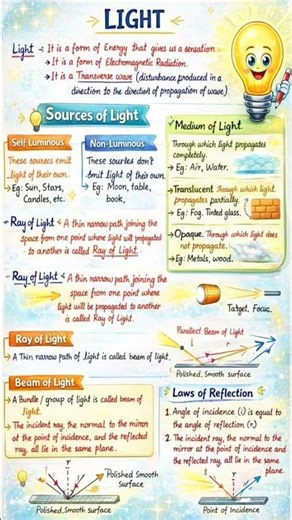 LIGHT
Light - It is a form of Energy that gives us a sensation.
→ It is a form of Electromagnetic Radiation.
→ It is a Transverse wave (disturbance produced in a
direction to the direction of propagation of wave).
Sources of Light
Self Luminous
These sources emit
light of their own.
→ Eg: Sun, Stars,
Candles, etc.
Non-Luminous
These sourles don't
emit light of their own.
→ Eg: Moon, table,
book,
Medium of Light.
Through which light propagates
completely.
→ Eg: Air, Water.
Translucent Through which light
propagates partially.
→ Eg: Fog, Tinted glass,
Opaque. Through which light does
not propagate.
→ Eg: Metals, wood.
Ray of Light - A thin narrow path joining the
space from one point where light will propagated
to another is called Ray of Light.
Ray of Light - A thin narrow path
space from one point where
light will be propagated to another
is called Ray of Light.
Target, Focus.
Ray of Light
→ A Thin narrow path of light is called beam of light.
Parallect Beam of Light
i
r
Polished, Smooth surface
Beam of Light
→ A Bundle / group of light is called beam of
light.
→ The incident ray, the normal to the mirror
at the point of incidence, and the reflected
ray, all lie in the same plane.
Polished Smooth
Surface
Polished, Smooth surface
Laws of Reflection
1. Angle of incidence (i) is equal to
the angle of reflection (r)
2. The incident ray, the normal to the
mirror at the point of incidence and
the reflected ray, all lie in the same
plane.
Point of Incidence